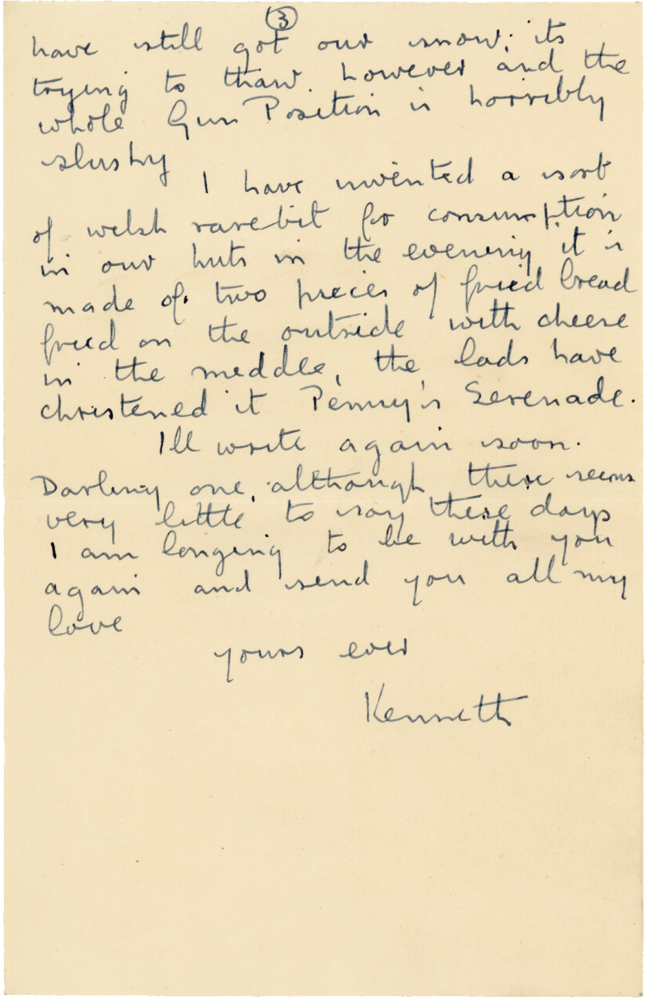 ③
have still got our snow; its
trying to thaw however and the
whole Gun Position is horribly
slushy
I have invented a sort
of welsh rarebit for consumption
in our huts in the evening it is
made of two pieces of fried bread
fried on the outside with cheese
in the middle, the lads have
christened it Penny's Serenade.
I'll write again soon.
Darling one, although there seems
very little to say these days
I am longing to be with you
again and send you all my
love
yours ever
Kenneth